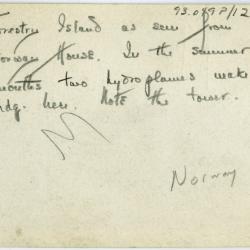 93.049P/12
Forestry Island as seen from
Norway House. In the summer
months two hydroplanes make
hdq. here. Note the tower.
Norway